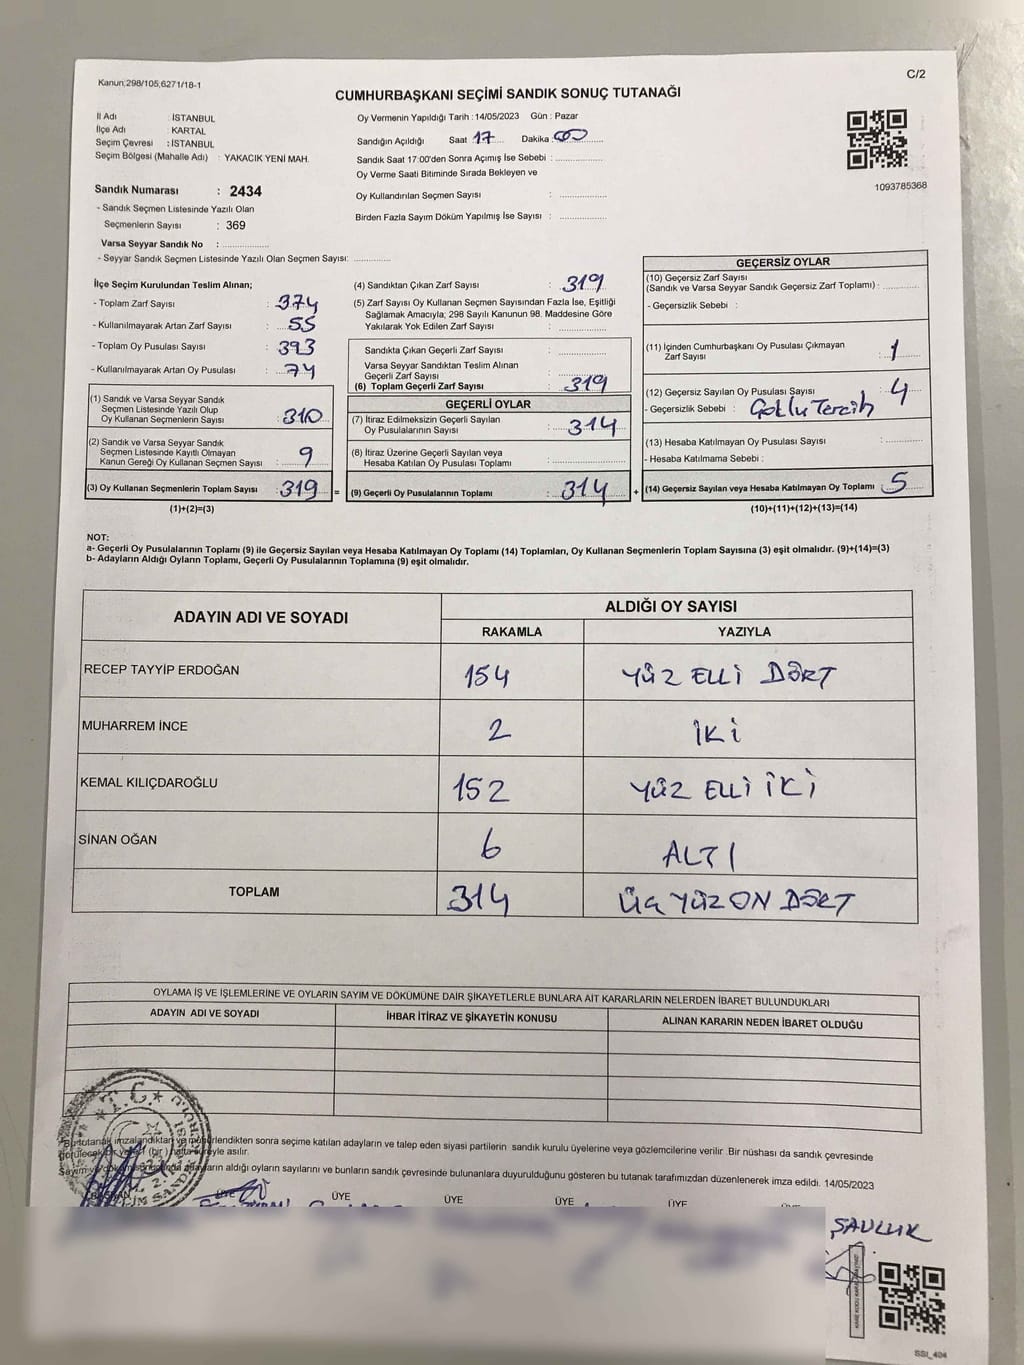 Kanun:298/105,6271/18-1
C/2
CUMHURBAŞKANI SEÇİMİ SANDIK SONUÇ TUTANAĞI
İl Adı : İSTANBUL
İlçe Adı : KARTAL
Seçim Çevresi : İSTANBUL
Seçim Bölgesi (Mahalle Adı) : YAKACIK YENİ MAH.
Sandık Numarası : 2434
- Sandık Seçmen Listesinde Yazılı Olan
Seçmenlerin Sayısı : 369
Varsa Seyyar Sandık No : ...................
- Seyyar Sandık Seçmen Listesinde Yazılı Olan Seçmen Sayısı: ..............
Oy Vermenin Yapıldığı Tarih : 14/05/2023 Gün : Pazar
Sandığın Açıldığı Saat 17 Dakika : 00
Sandık Saat 17:00'den Sonra Açımış İse Sebebi : ..................
Oy Verme Saati Bitiminde Sırada Bekleyen ve
Oy Kullandırılan Seçmen Sayısı : ..................
Birden Fazla Sayım Döküm Yapılmış İse Sayısı : ..................
1093785368
İlçe Seçim Kurulundan Teslim Alınan;
- Toplam Zarf Sayısı : 374
- Kullanılmayarak Artan Zarf Sayısı : 55
- Toplam Oy Pusulası Sayısı : 393
- Kullanılmayarak Artan Oy Pusulası : 74
(1) Sandık ve Varsa Seyyar Sandık
Seçmen Listesinde Yazılı Olup
Oy Kullanan Seçmenlerin Sayısı : 310
(2) Sandık ve Varsa Seyyar Sandık
Seçmen Listesinde Kayıtlı Olmayan
Kanun Gereği Oy Kullanan Seçmen Sayısı : 9
(3) Oy Kullanan Seçmenlerin Toplam Sayısı : 319 =
(1)+(2)=(3)
(4) Sandıktan Çıkan Zarf Sayısı : 319
(5) Zarf Sayısı Oy Kullanan Seçmen Sayısından Fazla İse, Eşitliği
Sağlamak Amacıyla; 298 Sayılı Kanunun 98. Maddesine Göre
Yakılarak Yok Edilen Zarf Sayısı : ..................
Sandıkta Çıkan Geçerli Zarf Sayısı : ..................
Varsa Seyyar Sandıktan Teslim Alınan
Geçerli Zarf Sayısı : ..................
(6) Toplam Geçerli Zarf Sayısı : 319
GEÇERLİ OYLAR
(7) İtiraz Edilmeksizin Geçerli Sayılan
Oy Pusulalarının Sayısı : 314
(8) İtiraz Üzerine Geçerli Sayılan veya
Hesaba Katılan Oy Pusulası Toplamı : ..................
(9) Geçerli Oy Pusulalarının Toplamı : 314 +
GEÇERSİZ OYLAR
(10) Geçersiz Zarf Sayısı
(Sandık ve Varsa Seyyar Sandık Geçersiz Zarf Toplamı) : ..............
- Geçersizlik Sebebi :
(11) İçinden Cumhurbaşkanı Oy Pusulası Çıkmayan
Zarf Sayısı : 1
(12) Geçersiz Sayılan Oy Pusulası Sayısı : 4
- Geçersizlik Sebebi : Çoklu Tercih
(13) Hesaba Katılmayan Oy Pusulası Sayısı : ..............
- Hesaba Katılmama Sebebi :
(14) Geçersiz Sayılan veya Hesaba Katılmayan Oy Toplamı : 5
(10)+(11)+(12)+(13)=(14)
NOT:
a- Geçerli Oy Pusulalarının Toplamı (9) ile Geçersiz Sayılan veya Hesaba Katılmayan Oy Toplamı (14) Toplamları, Oy Kullanan Seçmenlerin Toplam Sayısına (3) eşit olmalıdır. (9)+(14)=(3)
b- Adayların Aldığı Oyların Toplamı, Geçerli Oy Pusulalarının Toplamına (9) eşit olmalıdır.
ADAYIN ADI VE SOYADI ALDIĞI OY SAYISI
RAKAMLA YAZIYLA
RECEP TAYYİP ERDOĞAN 154 YÜZ ELLİ DÖRT
MUHARREM İNCE 2 İKİ
KEMAL KILIÇDAROĞLU 152 YÜZ ELLİ İKİ
SİNAN OĞAN 6 ALTI
TOPLAM 314 ÜÇ YÜZ ON DÖRT
OYLAMA İŞ VE İŞLEMLERİNE VE OYLARIN SAYIM VE DÖKÜMÜNE DAİR ŞİKAYETLERLE BUNLARA AİT KARARLARIN NELERDEN İBARET BULUNDUKLARI
ADAYIN ADI VE SOYADI İHBAR İTİRAZ VE ŞİKAYETİN KONUSU ALINAN KARARIN NEDEN İBARET OLDUĞU
T.C.
Bu tutanak imzalandıktan ve mühürlendikten sonra seçime katılan adayların ve talep eden siyasi partilerin sandık kurulu üyelerine veya gözlemcilerine verilir. Bir nüshası da sandık çevresinde
görülecek bir yere (bir) hafta süreyle asılır.
Sayım ve döküm sonucunda adayların aldığı oyların sayılarını ve bunların sandık çevresinde bulunanlara duyurulduğunu gösteren bu tutanak tarafımızdan düzenlenerek imza edildi. 14/05/2023
BAŞKAN ÜYE ÜYE ÜYE ÜYE ÜYE
ŞAVLUK
SSI_404